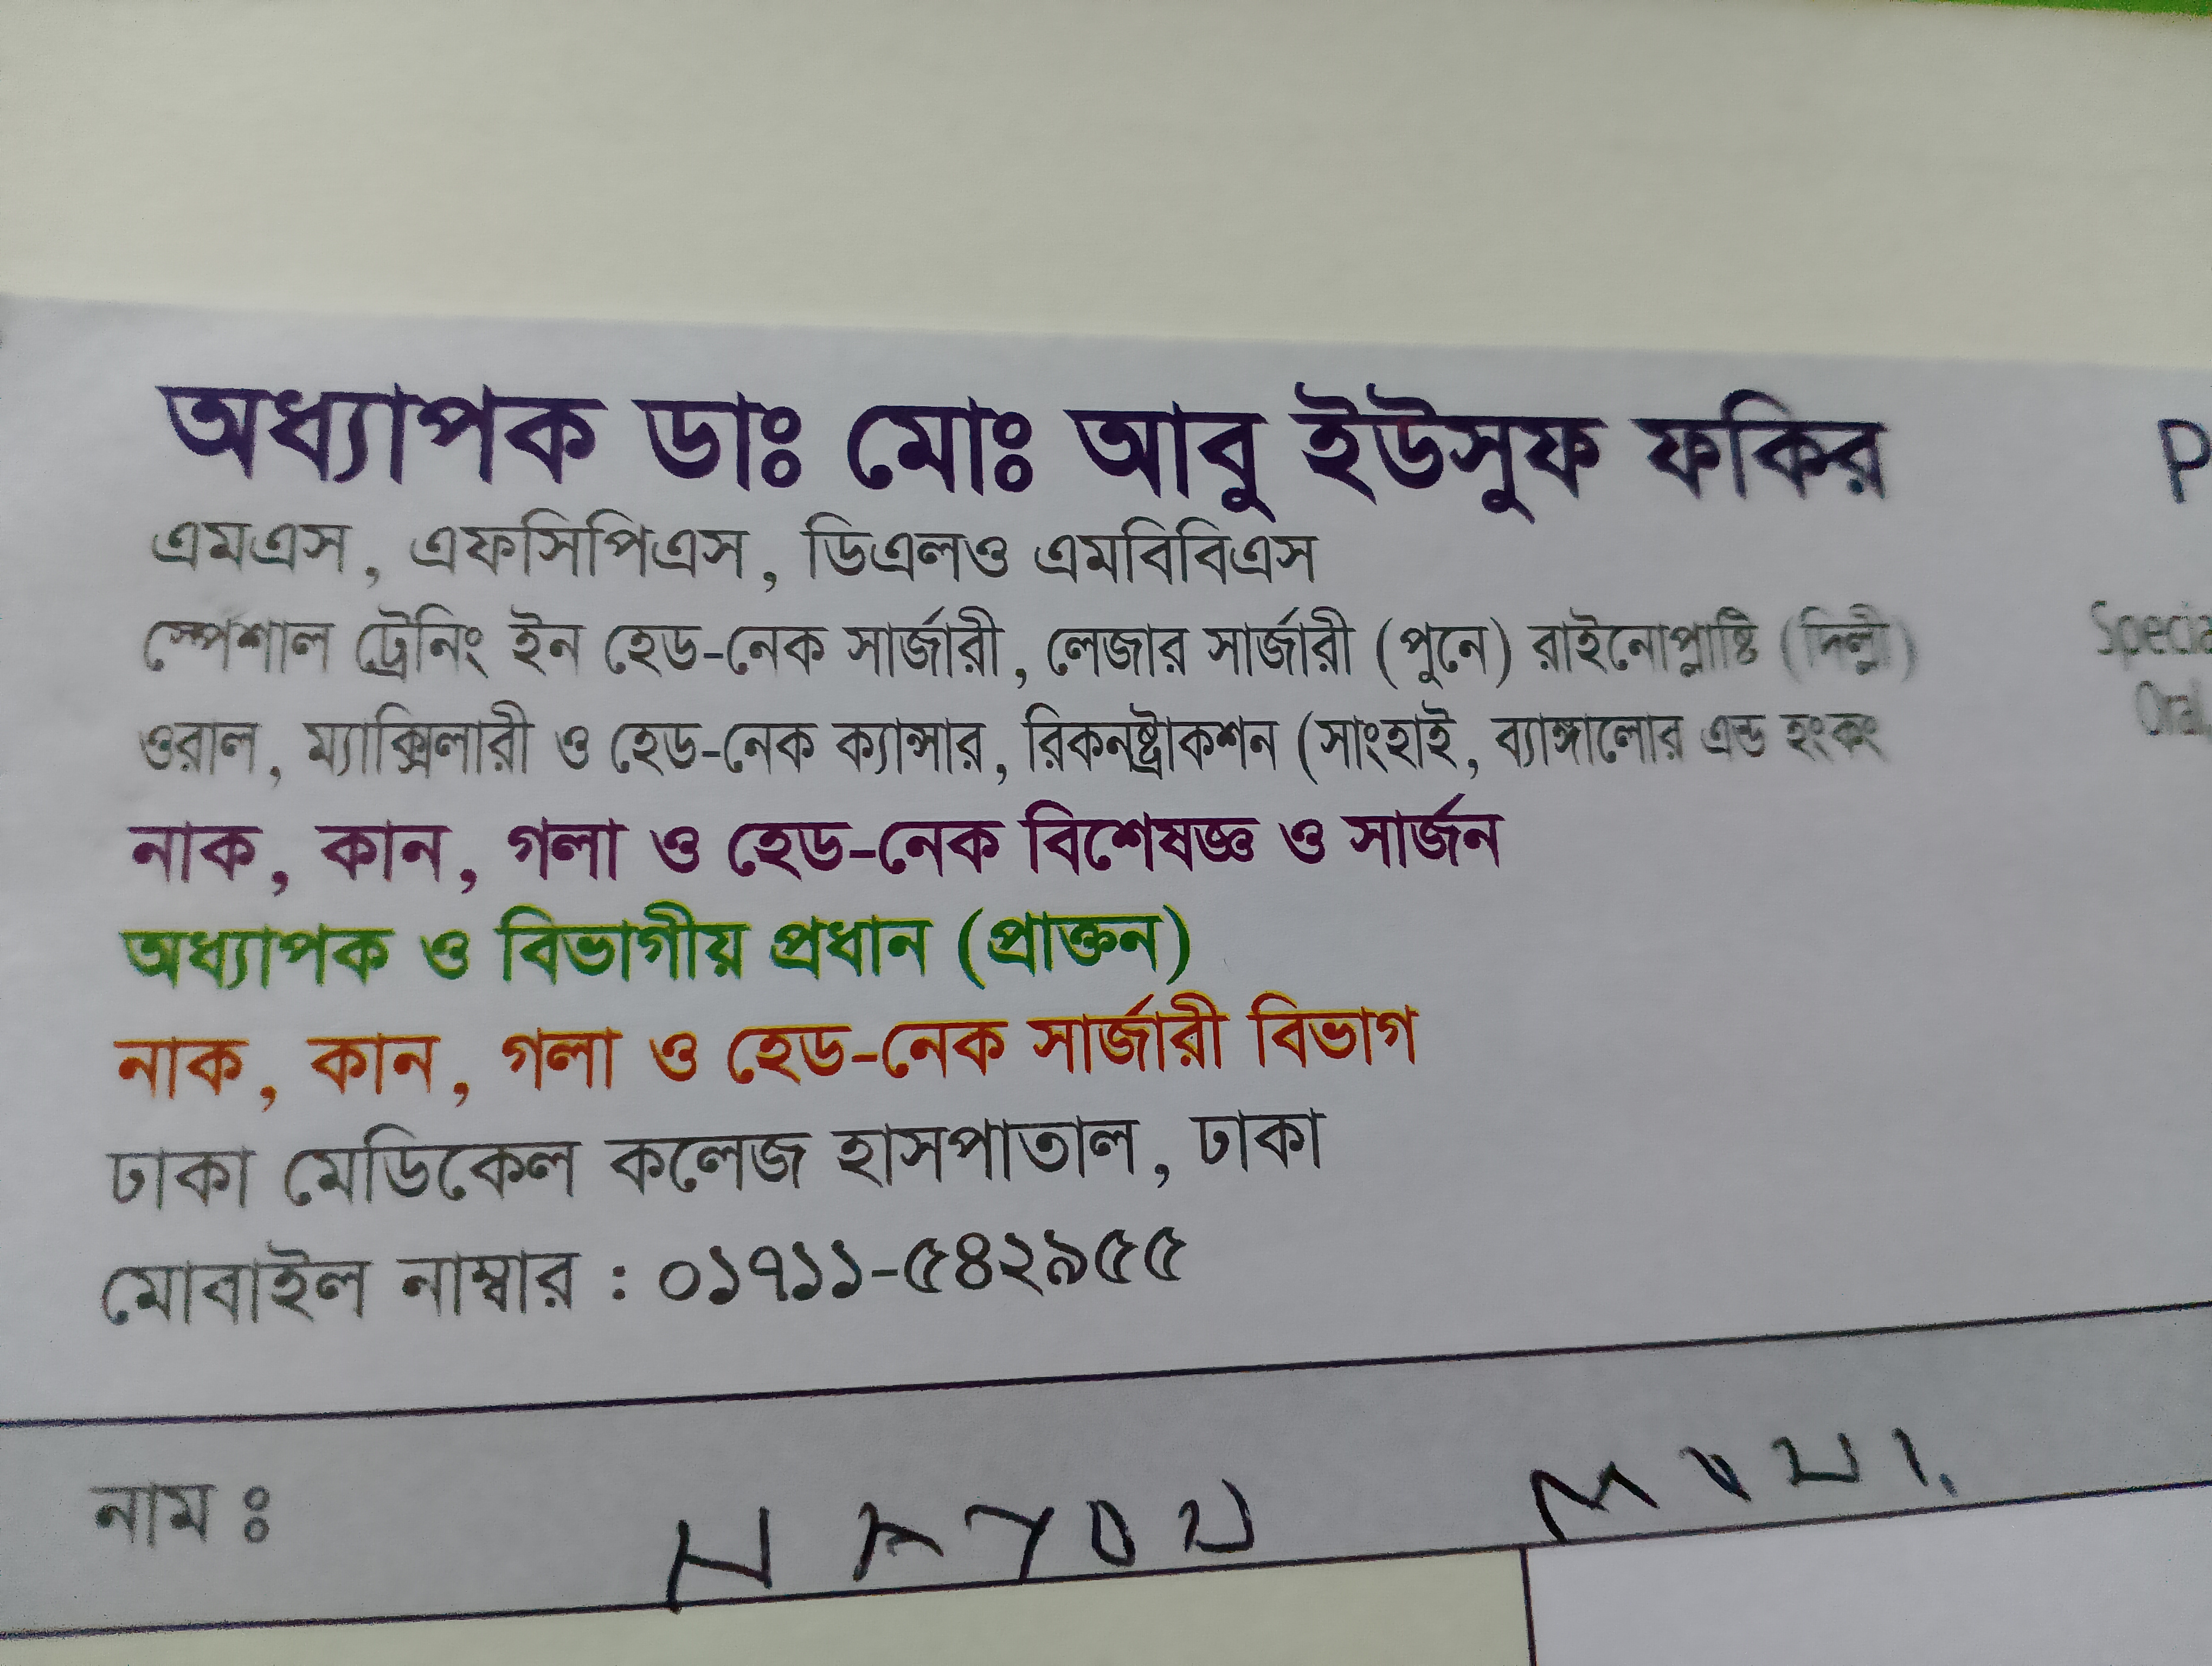 অধ্যাপক ডাঃ মোঃ আবু ইউসুফ ফকির
P
এমএস, এফসিপিএস, ডিএলও এমবিবিএস
স্পেশাল ট্রেনিং ইন হেড-নেক সার্জারী, লেজার সার্জারী (পুনে) রাইনোপ্লাষ্টি (দিল্লী)
Specia
ওরাল, ম্যাক্সিলারী ও হেড-নেক ক্যান্সার, রিকনষ্ট্রাকশন (সাংহাই, ব্যাঙ্গালোর এন্ড হংকং
Oral,
নাক, কান, গলা ও হেড-নেক বিশেষজ্ঞ ও সার্জন
অধ্যাপক ও বিভাগীয় প্রধান (প্রাক্তন)
নাক, কান, গলা ও হেড-নেক সার্জারী বিভাগ
ঢাকা মেডিকেল কলেজ হাসপাতাল, ঢাকা
মোবাইল নাম্বার : ০১৭১১-৫৪২৯৫৫
নাম ঃ NAYON